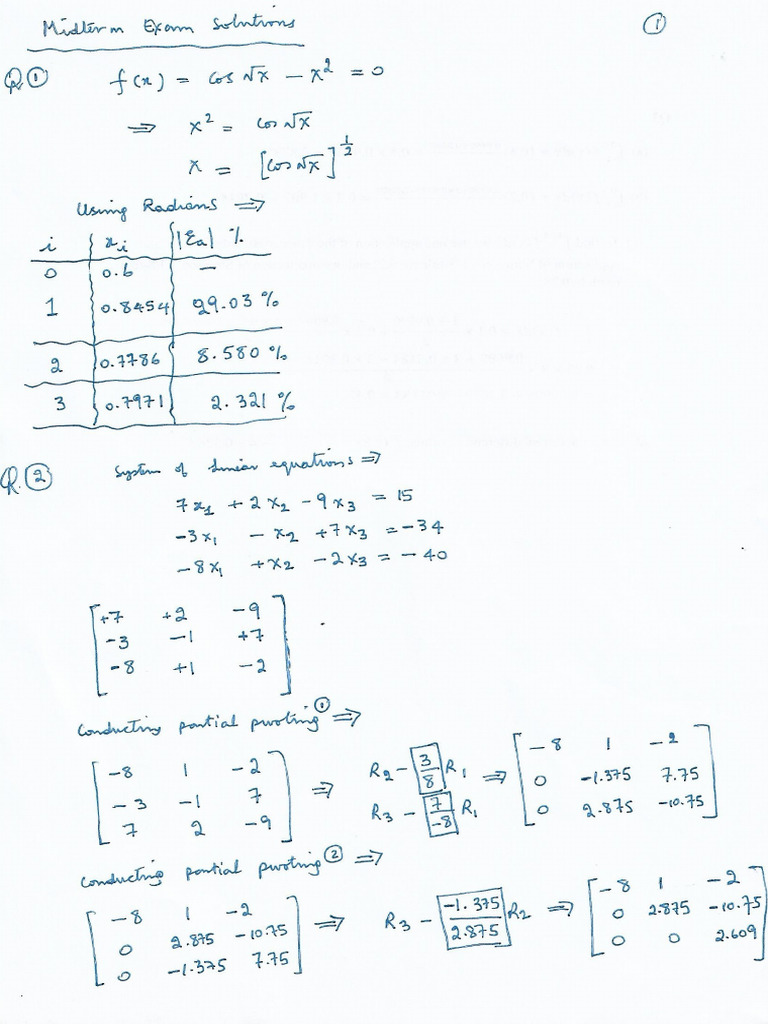 Midterm Exam Solutions ①
Q① f(x) = cos √x − x² = 0
⇒ x² = cos √x
x = [cos √x]^{1/2}
Using Radians ⇒
i | xᵢ | |εₐ| %
0 | 0.6 | —
1 | 0.8454 | 29.03 %
2 | 0.7786 | 8.580 %
3 | 0.7971 | 2.321 %
Q.② System of linear equations ⇒
7x₁ + 2x₂ − 9x₃ = 15
−3x₁ − x₂ + 7x₃ = −34
−8x₁ + x₂ − 2x₃ = −40
+7 +2 −9
−3 −1 +7
−8 +1 −2
Conducting partial pivoting① ⇒
[−8 1 −2] R₂ − [3/8] R₁ [−8 1 −2]
[−3 −1 7] ⇒ ⇒ [0 −1.375 7.75]
[7 2 −9] R₃ − [7/−8] R₁ [0 2.875 −10.75]
Conducting partial pivoting② ⇒
[−8 1 −2] [−8 1 −2]
[0 2.875 −10.75] ⇒ R₃ − [−1.375/2.875] R₂ ⇒ [0 2.875 −10.75]
[0 −1.375 7.75] [0 0 2.609]